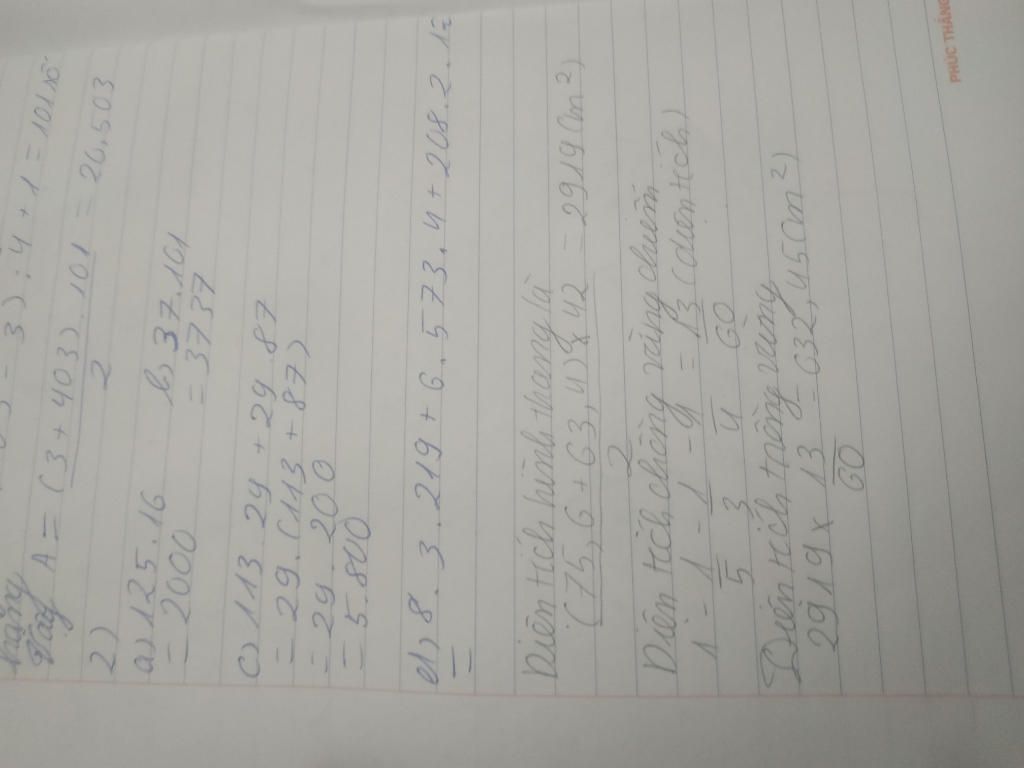 - 3) : 4 + 1 = 101 số
Vậy A = (3 + 403) . 101 = 20,503
2
2)
a) 125.16 b) 37.101
= 2000 = 3737
c) 113.29 + 29.87
= 29.(113 + 87)
= 29.200
= 5.800
d) 8.3.219 + 6.573.4 + 208.2.12
=
Diện tích hình thang là
(75,6 + 63,4) x 42 = 2919 (m²)
2
Diện tích chồng vàng chuối
1 - 1 - 1 - 4 = 13 (diện tích)
5 3 4 60
Diện tích trồng vừng
2919 x 13 = 632,450m²)
60
PHÚC THẮNG